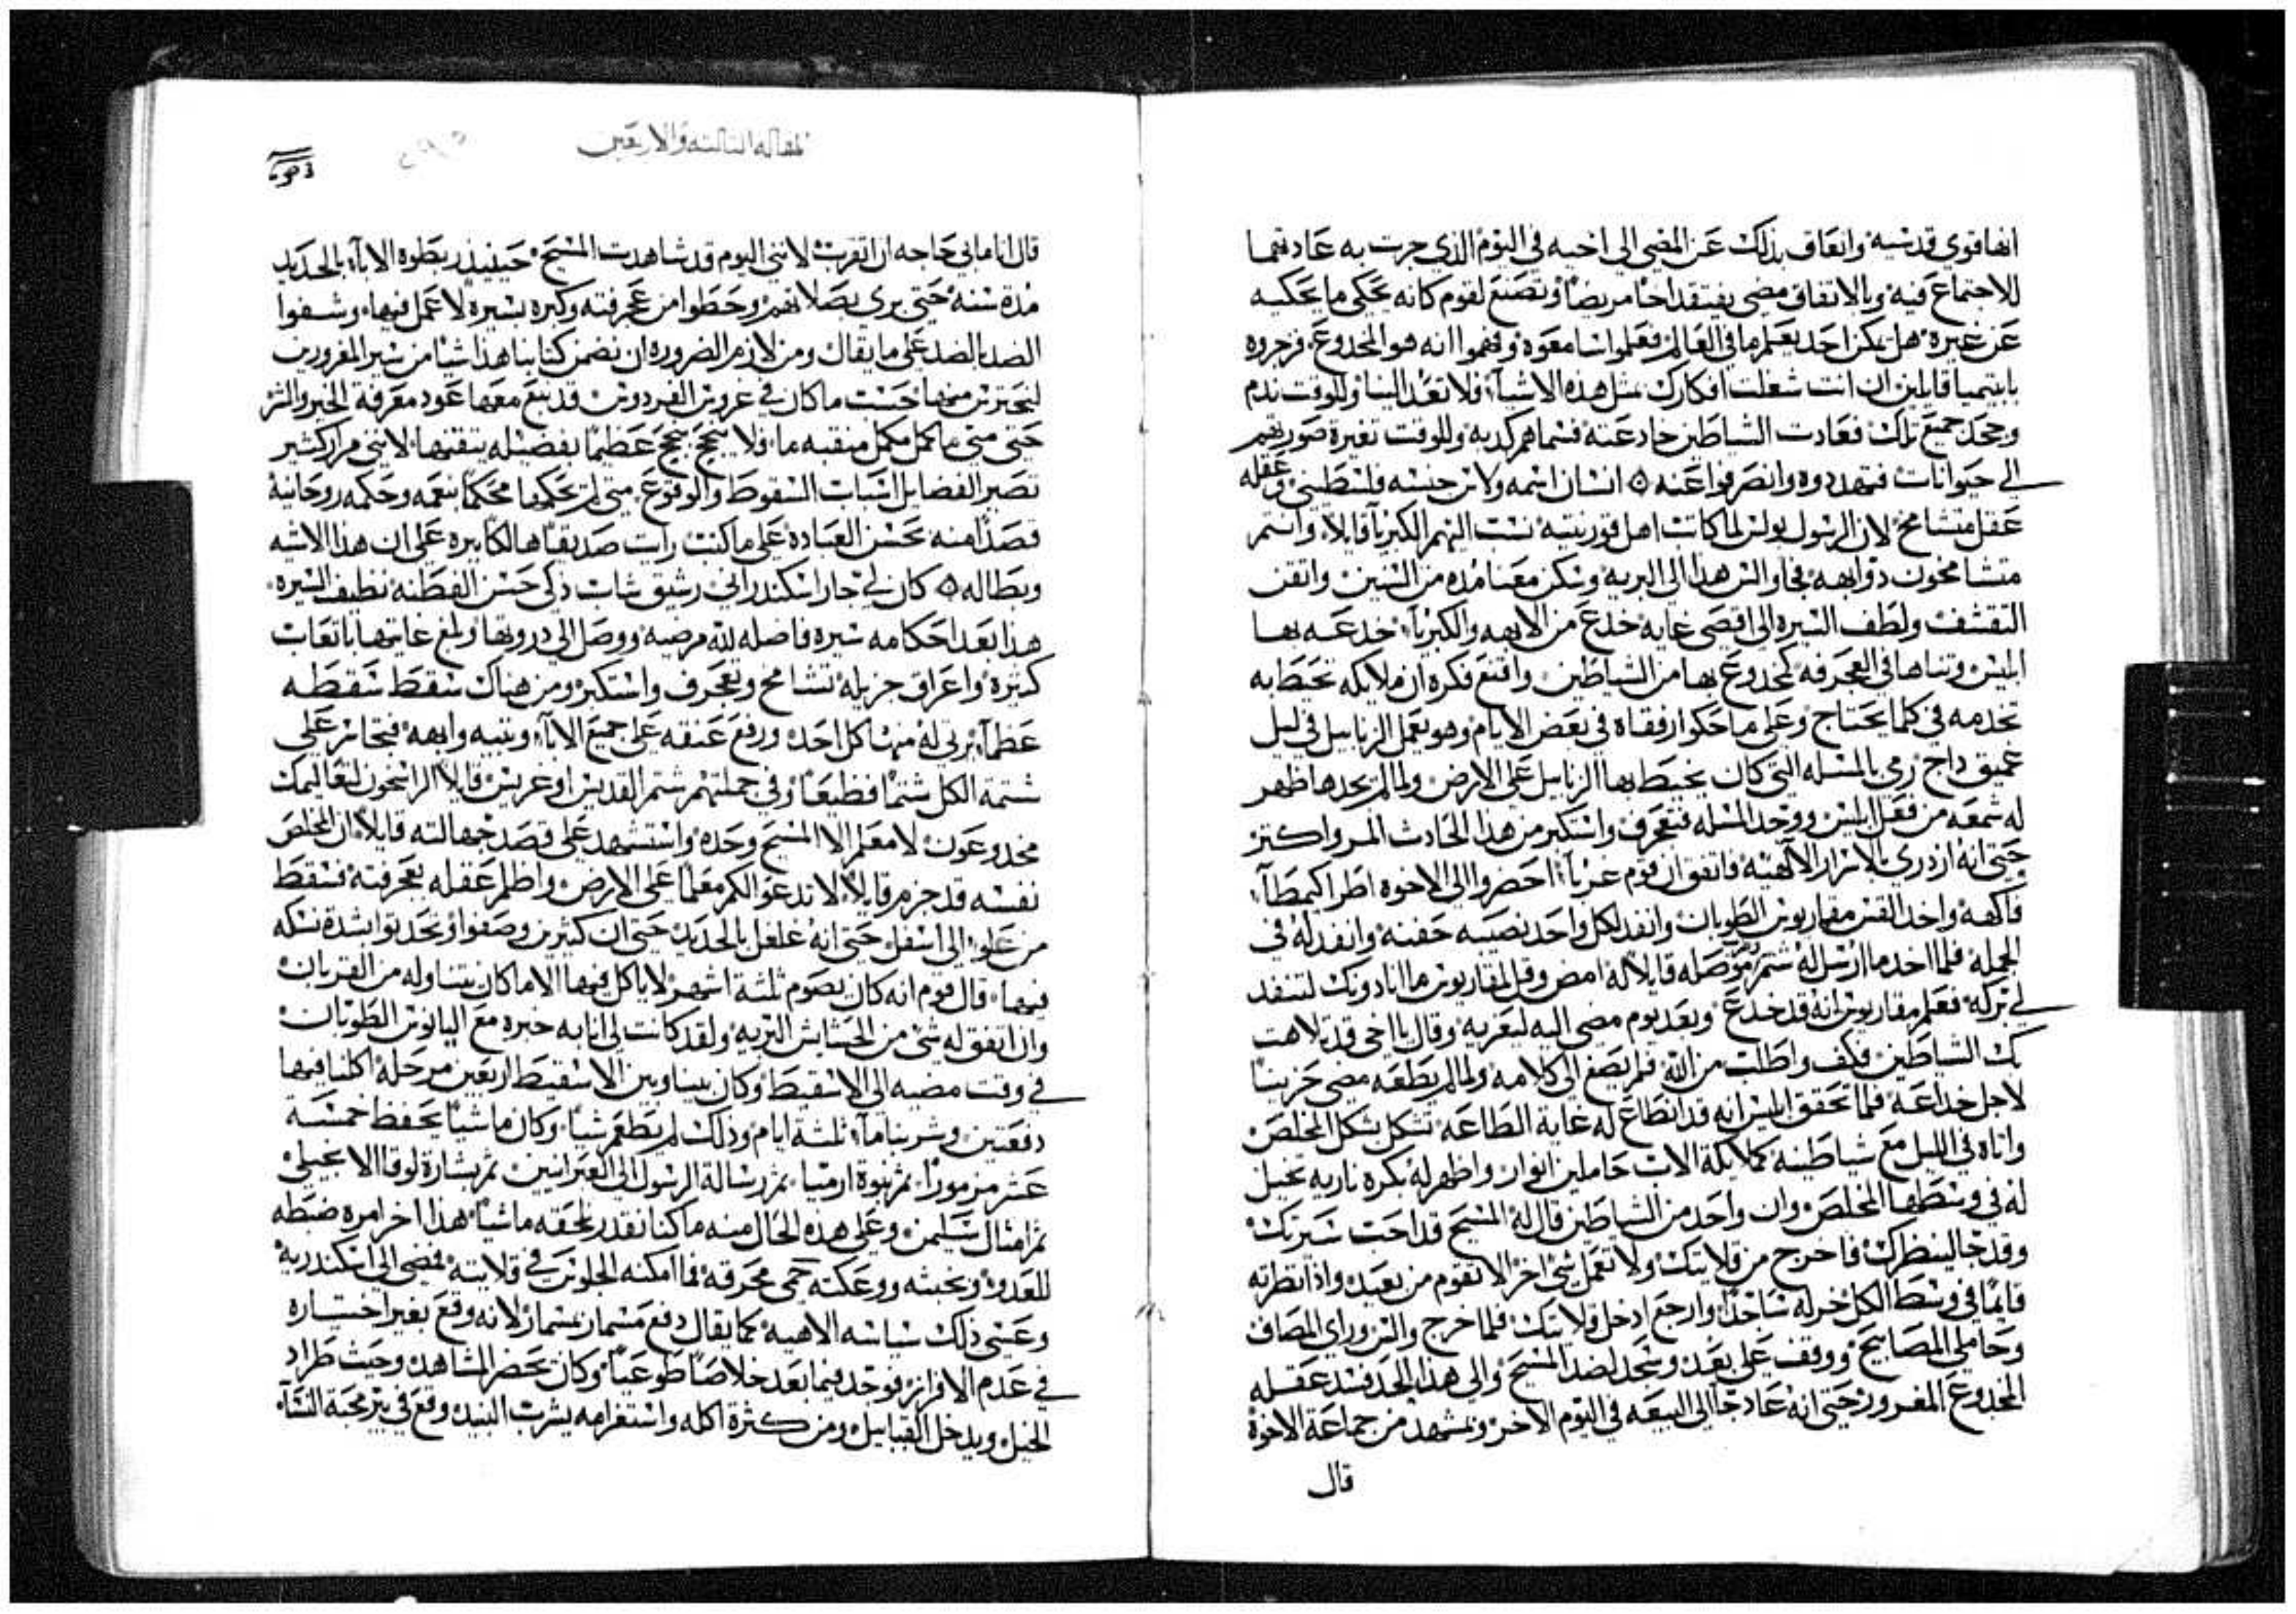 انها قوي قدسيه وانعاق بذلك عن المضي الى اخيه في اليوم الذي جرت به عادتهما
للاجتماع فيه وبالاتفاق مضى يفتقد اخا مريضا وتصنع لقوم كانه يحكي ما يحكيه
عن غيره هل يمكن احد يعلم ما في العالم فعلموا اسا معوه وفهموا انه هو المخدوع فزجروه
بابتهما قايلين ان انت شغلت افكارك بمثل هذه الاشيا فلا تعد الينا وللوقت ندم
وجحد جميع تلك فعادت الشياطين خادعته فسماهم كدبه وللوقت تغيرة صورتهم
الى حيوانات فتهددوه وانصرفوا عنه ٥ انسان اسمه ولانس جنسه فلسطيني وعقله
عقل متشامخ لان الرسول بولس لما كاتب اهل قورنتيه نسب اليهم الكبريا قايلا وانتم
متشامخون ذو ابهه فجا والنس هذا الى البريه وسكن معنا مده من السنين واتقن
التقشف ولطف السيره الى اقصى غايه خدع من الابهه والكبريا خدعه بها
ابليس وتناها في العجرفه كمخدوع بها من الشياطين واقنع فكره ان ملايكه تحتط به
تخدمه في كلما يحتاج وعلى ما حكوا رفقاه في بعض الايام وهو يعمل الزنابيل في ليل
عميق داج رمى بالمسله التي كان يخيط بها الزنابيل على الارض ولما لم يجدها ظهر
له شمعه من فعل ابليس ووجد المسله فتعجرف واستكبر من هذا الحادث المر واكتنز
حتى انه ازدرى بالاسرار الالاهيه فاتفق ان قوم غربا احضروا الى الاخوه اطراكيمطا
فاكهه واخد القس مقاريوس الطوبان وانفد لكل واحد نصيبه حفنه وانفد له في
الجمله فلما اخد ما ارسل له شتم موصله قايلا له امض وقل لمقاريوس ما انا دونك لتنفد
لي بركه فعلم مقاريوس انه قد خدع وبعد يوم مضى اليه ليعزيه وقال يا اخي قد تلاهت
بك الشياطين فكف واطلب من الله فلم يصغ الى كلامه ولما لم يطعه مضى حزينا
لاجل خداعه فلما تحقق ابليس انه قد انطاع له غاية الطاعه تشكل بشكل المخلص
واتاه في الليل مع شياطينه كملايكة الاب حاملين انوار واظهر له بكره ناريه تخيل
له في وسطها المخلص وان واحد من الشياطين قال له المسيح قد احب سيرتك
وقد جا لينظرك فاخرج من قلايتك ولا تعمل شي اخر الا تقوم من بعيد واذا نظرته
قايما في وسط الكل خر له ساجدا وارجع ادخل قلايتك فلما خرج والنس وراى المصاف
وحاملي المصابيح ووقف على بعد وسجد لضد المسيح والى هذا الحد فسد عقله
المخدوع المغرور حتى انه عاد جا الى البيعه في اليوم الاخر ومشهد من جماعة الاخوه
قال
المقاله الثالثه والاربعين
قال انا ما بي حاجه ان اتقرب لانني اليوم قد شاهدت المسيح حينيذ ربطوه الابا بالحديد
مدة سنه حتى بري بصلاتهم وحطوا من عجرفته وكبره بسيره لا عمل فيها وشفوا
الضد بالضد على ما يقال ومن لازم الضروره ان نضمن كتابنا هذا شيا من سير المغرورين
ليحترس منها حسب ما كان في غروس الفردوس قد نبع معها عود معرفة الخير والشر
حتى متى ما كمل مكمل منقبه ما فلا يبجح بجح عظيما بفضيله يتقنها لانني مرار كثير
تصير الفضايل اسباب السقوط والوقوع متى لم تحكمها محكما بنعمه وحكمه روحانية
قصدا منه بحسن العباده على ما كتب رايت صديقا هالكا ببره على ان هذا الاشيه
وبطاله ٥ كان لي جار اسكندراني رشيق شاب ذكي حسن الفطنه نظيف السيره
هذا بعد احكامه سيره فاضله لله مرضيه ووصل الى دروتها وبلغ غايتها باتعاب
كثيرة واعراق جزيله تشامخ وتعجرف واستكبر ومن هناك سقط سقطه
عظما يرتي له منها كل احد ورفع عنقه على جميع الابا وبتيه وابهه فتجاسر على
شتمة الكل شتما فظيعا وفي جملتهم شتم القديس اوغريس قايلا الراسخون لتعاليمك
مخدوعون لا معلم الا المسيح وحده واستشهد على قصد جهالته قايلا ان المخلص
نفسه قد جزم قايلا لا تدعوا لكم معلما على الارض واظلم عقله بعجرفته فسقط
من علو الى اسفل حتى انه غلغل بالحديد حتى ان كثيرين وصفوا وتحدثوا بشدة نسكه
فيها قال قوم انه كان يصوم ثلثة اشهر لا ياكل فيها الا ما كان يتناوله من القربان
وان اتفق له شي من الحشايش البريه ولقد كانت لي انا به خبره مع اليانوس الطوبان
في وقت مضيه الى الاسقيط وكان بيننا وبين الاسقيط اربعين مرحله اكلنا فيها
دفعتين وشربنا ما ثلثة ايام وذلك لم يطعم شيا وكان ماشيا يحفظ خمسة
عشر مزمورا ثم نبوة ارميا ثم رسالة الرسول الى العبرانيين ثم بشارة لوقا الانجيلي
ثم امثال سليمن وعلى هذه الحال منه ما كنا نقدر نلحقه ماشيا هذا اخر امره ضبطه
للعدو وبخبثه ووعكته حمى محرقه فما امكنه الجلوس في قلايته فمضى الى اسكندرية
وعسى ذلك سياسه الاهيه كما يقال دفع مسمار بمسمار لانه وقع بغير اختياره
في عدم الافراز فوجد فيما بعد خلاصا طوعيا وكان يحضر المشاهد وحيث طراد
الخيل ويدخل القبايل ومن كثرة اكله واستغرامه بشرب النبيد وقع في بير محبة النسا